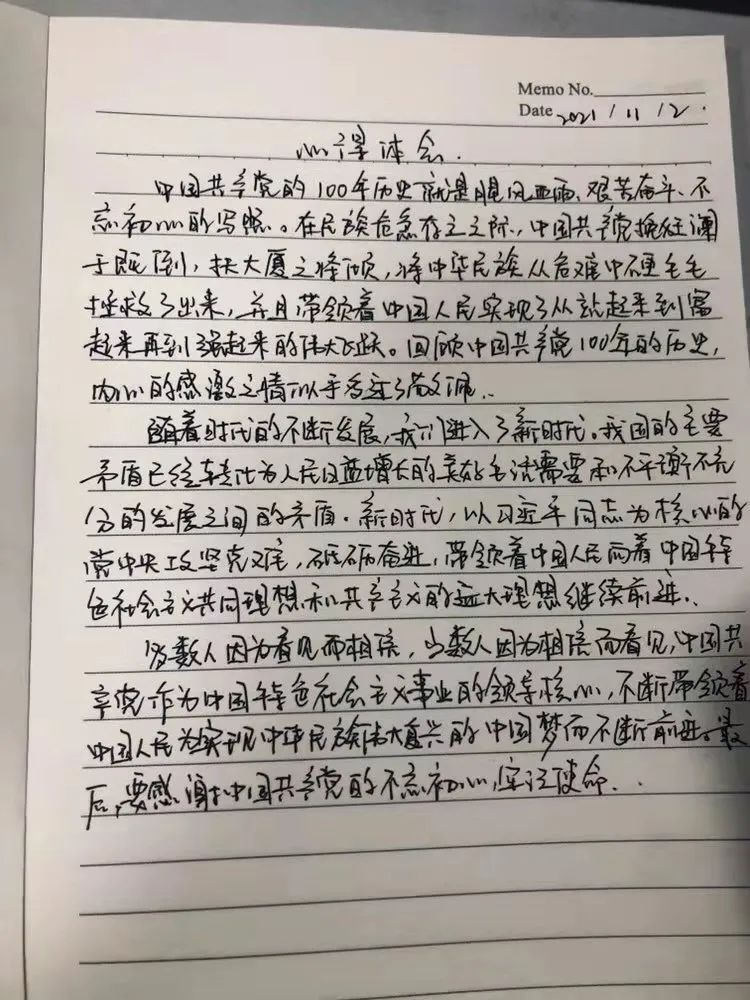 Memo No.
Date 2021 / 11 / 2.
心得体会.
中国共产党的100年历史就是腥风血雨、艰苦奋斗、不
忘初心的写照。在民族危急存亡之际,中国共产党挽狂澜
于既倒,扶大厦之将倾,将中华民族从危难中硬生生
拯救了出来,并且带领着中国人民实现了从站起来到富
起来再到强起来的伟大飞跃。回顾中国共产党100年的历史,
内心的感激之情
随着时代的不断发展,我们进入了新时代。我国的主要
矛盾已经转化为人民日益增长的美好生活需要和不平衡不充
分的发展之间的矛盾.新时代,以习近平同志为核心的
党中央攻坚克难,砥砺奋进,带领着中国人民向着中国特
色社会主义共同理想和共产主义的远大理想继续前进.
多数人因为看见而相信,少数人因为相信而看见,中国共
产党作为中国特色社会主义事业的领导核心,不断带领着
中国人民为实现中华民族伟大复兴的中国梦而不断前进。最
后,要感谢中国共产党的不忘初心,牢记使命.